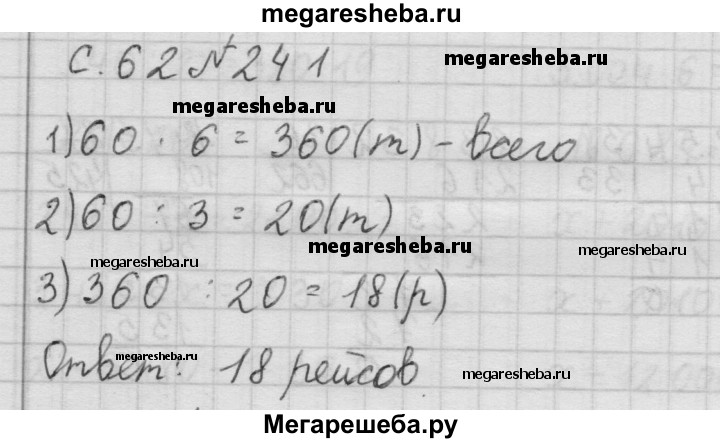 megaresheba.ru
с. 62 № 241
megaresheba.ru
1) 60 · 6 = 360 (т) - всего
2) 60 : 3 = 20 (т)
megaresheba.ru megaresheba.ru
megaresheba.ru
3) 360 : 20 = 18 (р)
megaresheba.ru
Ответ: 18 рейсов
megaresheba.ru
Мегарешеба.ру